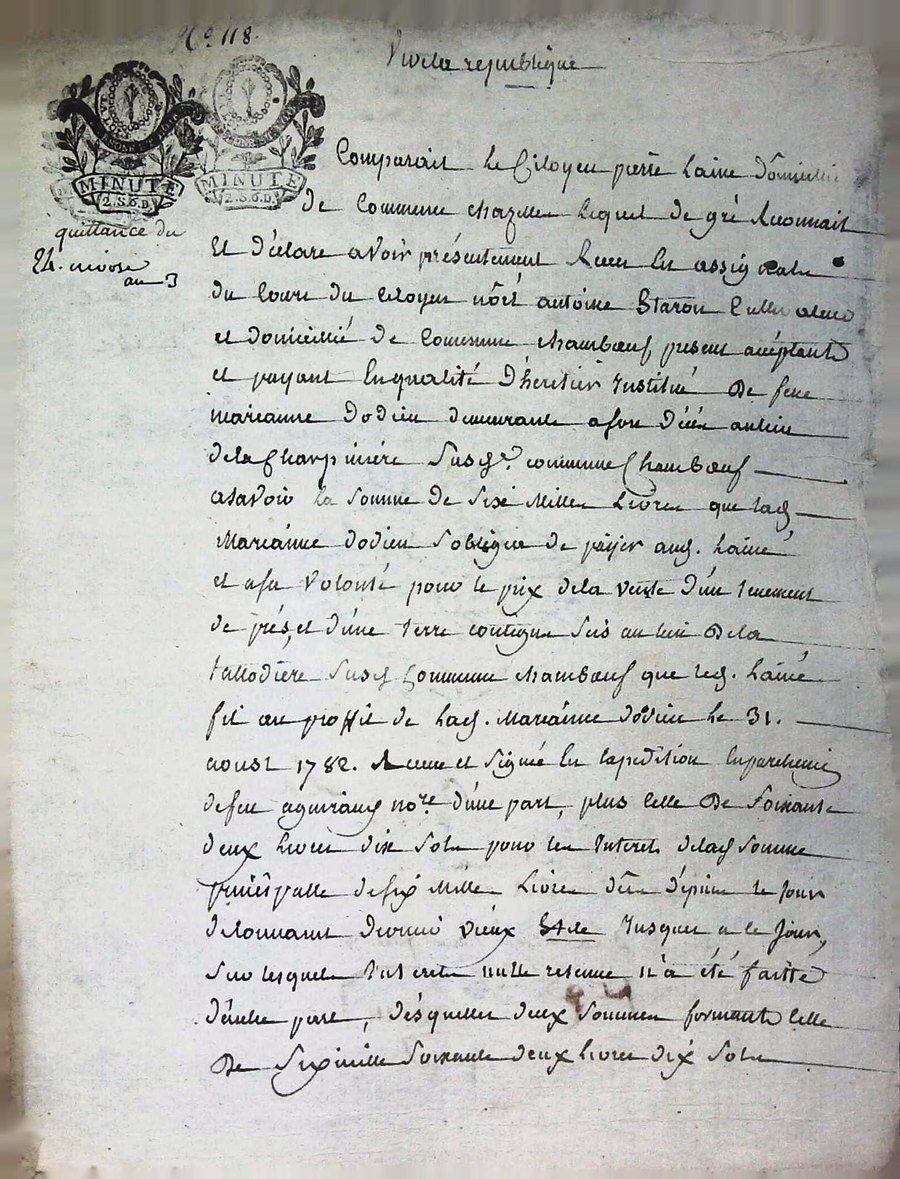 No. 118.
Vive la republique
MINUTE
2.S.6.D.
MINUTE
2.S.6.D.
quittance du
24. nivose
an 3
Comparait le Citoyen pierre lainé domicilié
de Commune chazelles lequel de gré Reconnait
Et déclare avoir présentement Receu En assignats
du Cours du citoyen antoine Staron Cultivateur
et domicilié de Commune chambœuf présent acéptant
et payant En qualité d'héretier Institué de feue
marianne dodieu demeurante
dela Charpinière Susd. commune Chambœuf
asavoir la Somme de Sixé Mille Livres que lad.
Marianne dodieu S'obligea de païjer aud. Lainé
et a sa Volonté pour le prix dela vente d'un tenement
de prés, et d'une terre contigue Sis au lieu Dela
tallodière Susd. Commune chambœuf que led. Lainé
fit au proffit de lad. Marianne dodieu le 31.
aoust 1782. Receue et Signée En Expedition En parchemin
defeu no.re d'une part, plus Celle De Soixante
deux Livres dix Sols pour les Interets delad. Somme
principalle de six Mille Livres dûs dépuis le Jour
vieux Stile Jusques a ce Jour,
Sur lesquels Interets nulle retenue n'a été faitte
d'autre part, désquelles deux Sommes formants Celle
De Sixmille Soixante deux Livres dix Sols